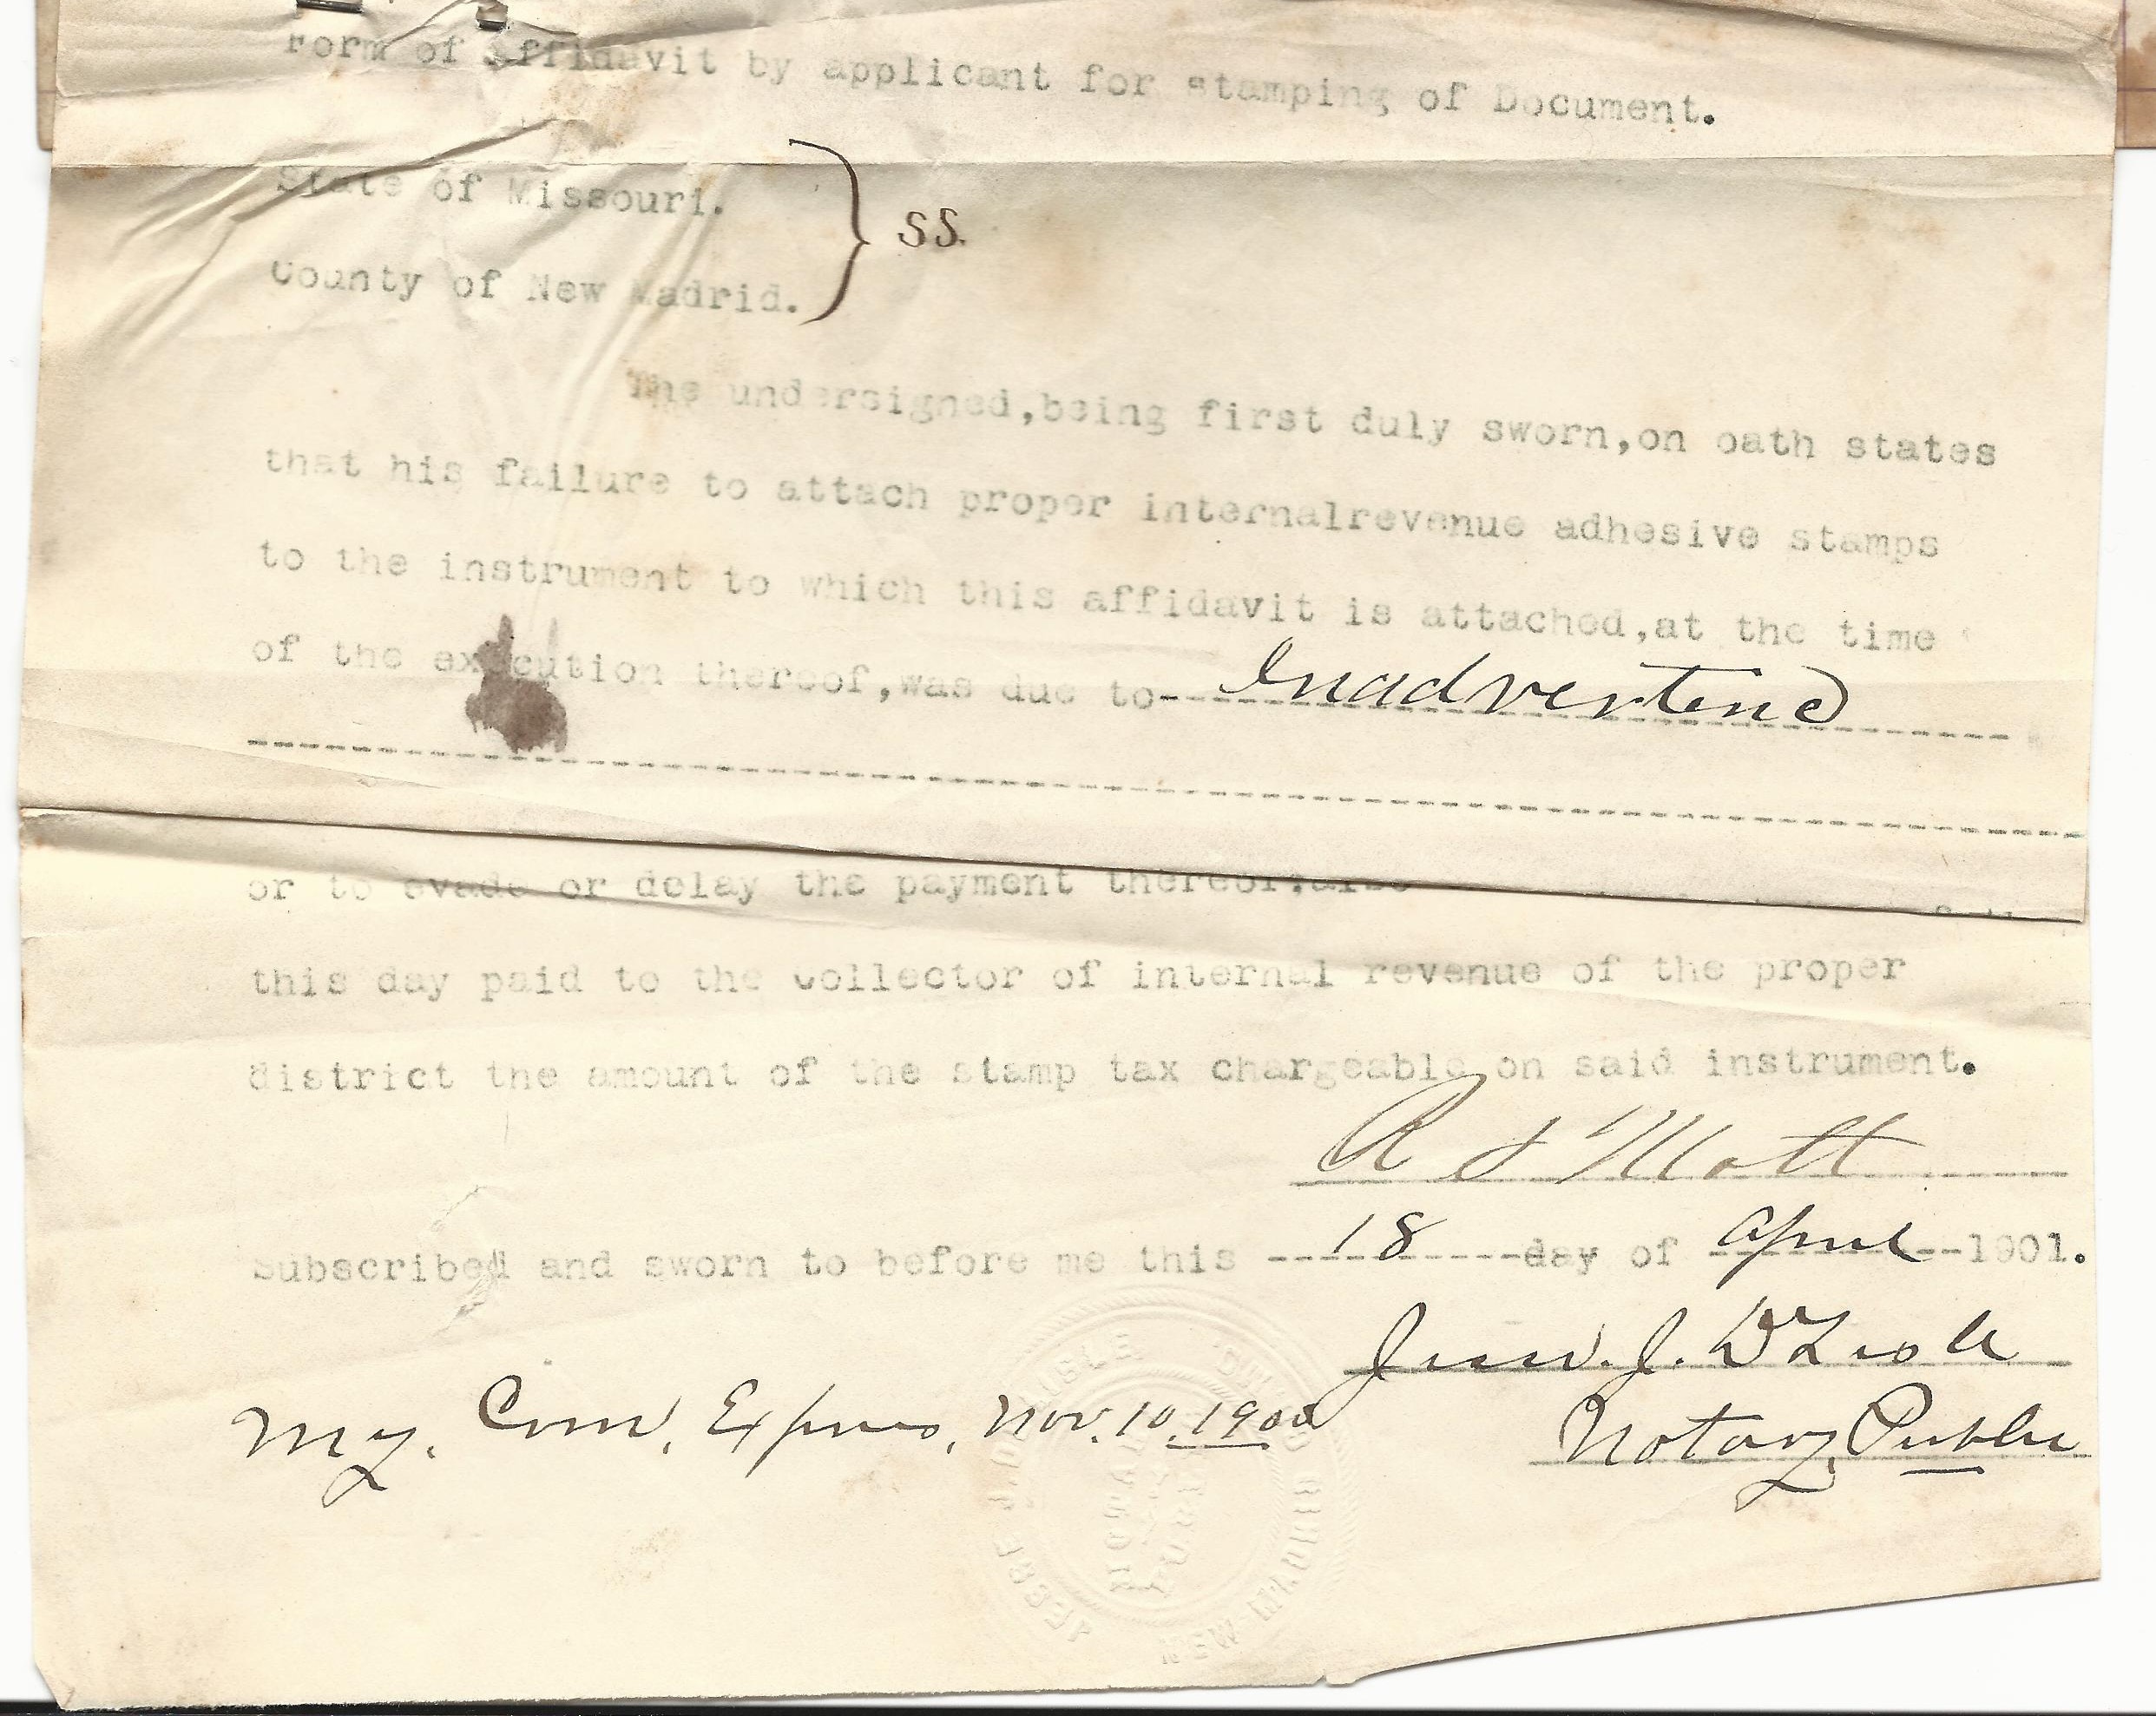 Form of Affidavit by applicant for stamping of Document.
State of Missouri.
SS.
County of New Madrid.
The undersigned,being first duly sworn,on oath states
that his failure to attach proper internalrevenue adhesive stamps
to the instrument to which this affidavit is attached,at the time
of the execution thereof,was due to--- Inadvertence
or to evade or delay the payment thereof;
this day paid to the collector of internal revenue of the proper
district the amount of the stamp tax chargeable on said instrument.
R S Mott
Subscribed and sworn to before me this ---18---day of April--1901.
J.
My. Com. Expires, Nov. 10, 
Notary Public
NEW MADRID
NOTARY